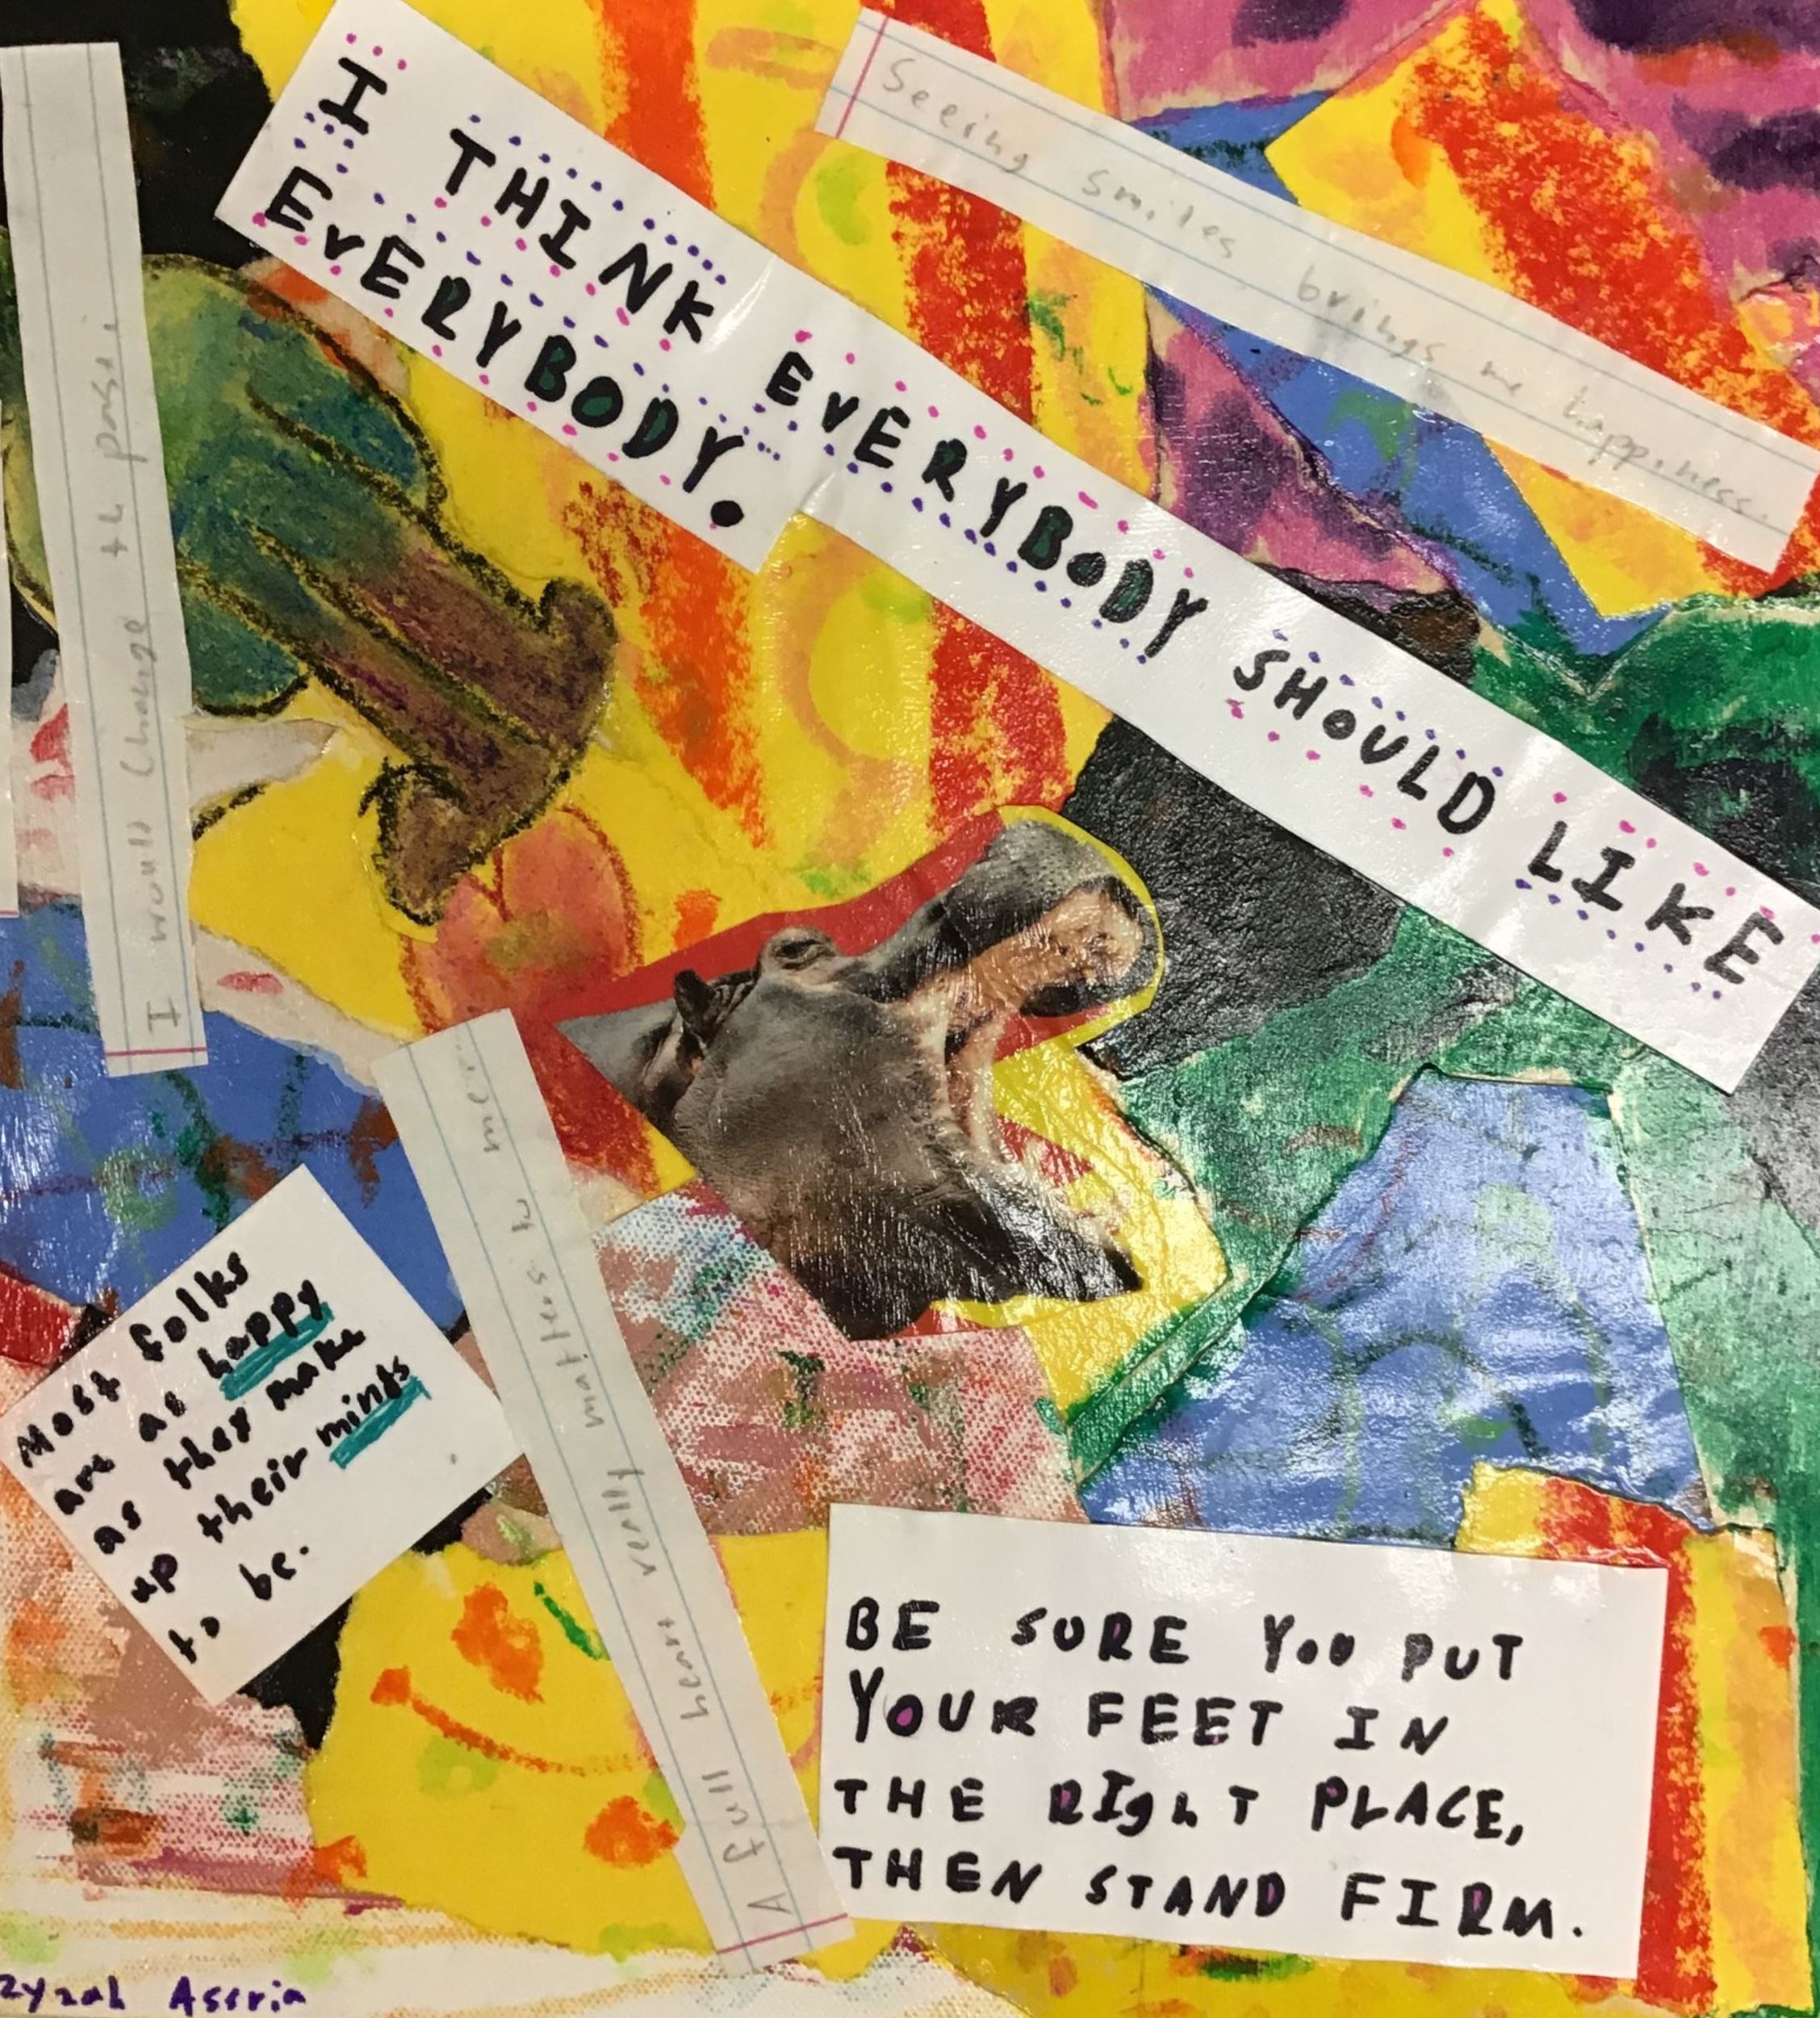 I THINK EVERYBODY SHOULD LIKE
EVERYBODY.
Seeing smiles brings me happiness.
I would change th past.
A full heart really matters to me
Most folks
are as happy
as they make
up their minds
to be.
BE SURE YOU PUT
YOUR FEET IN
THE RIghT PLACE,
THEN STAND FIRM.